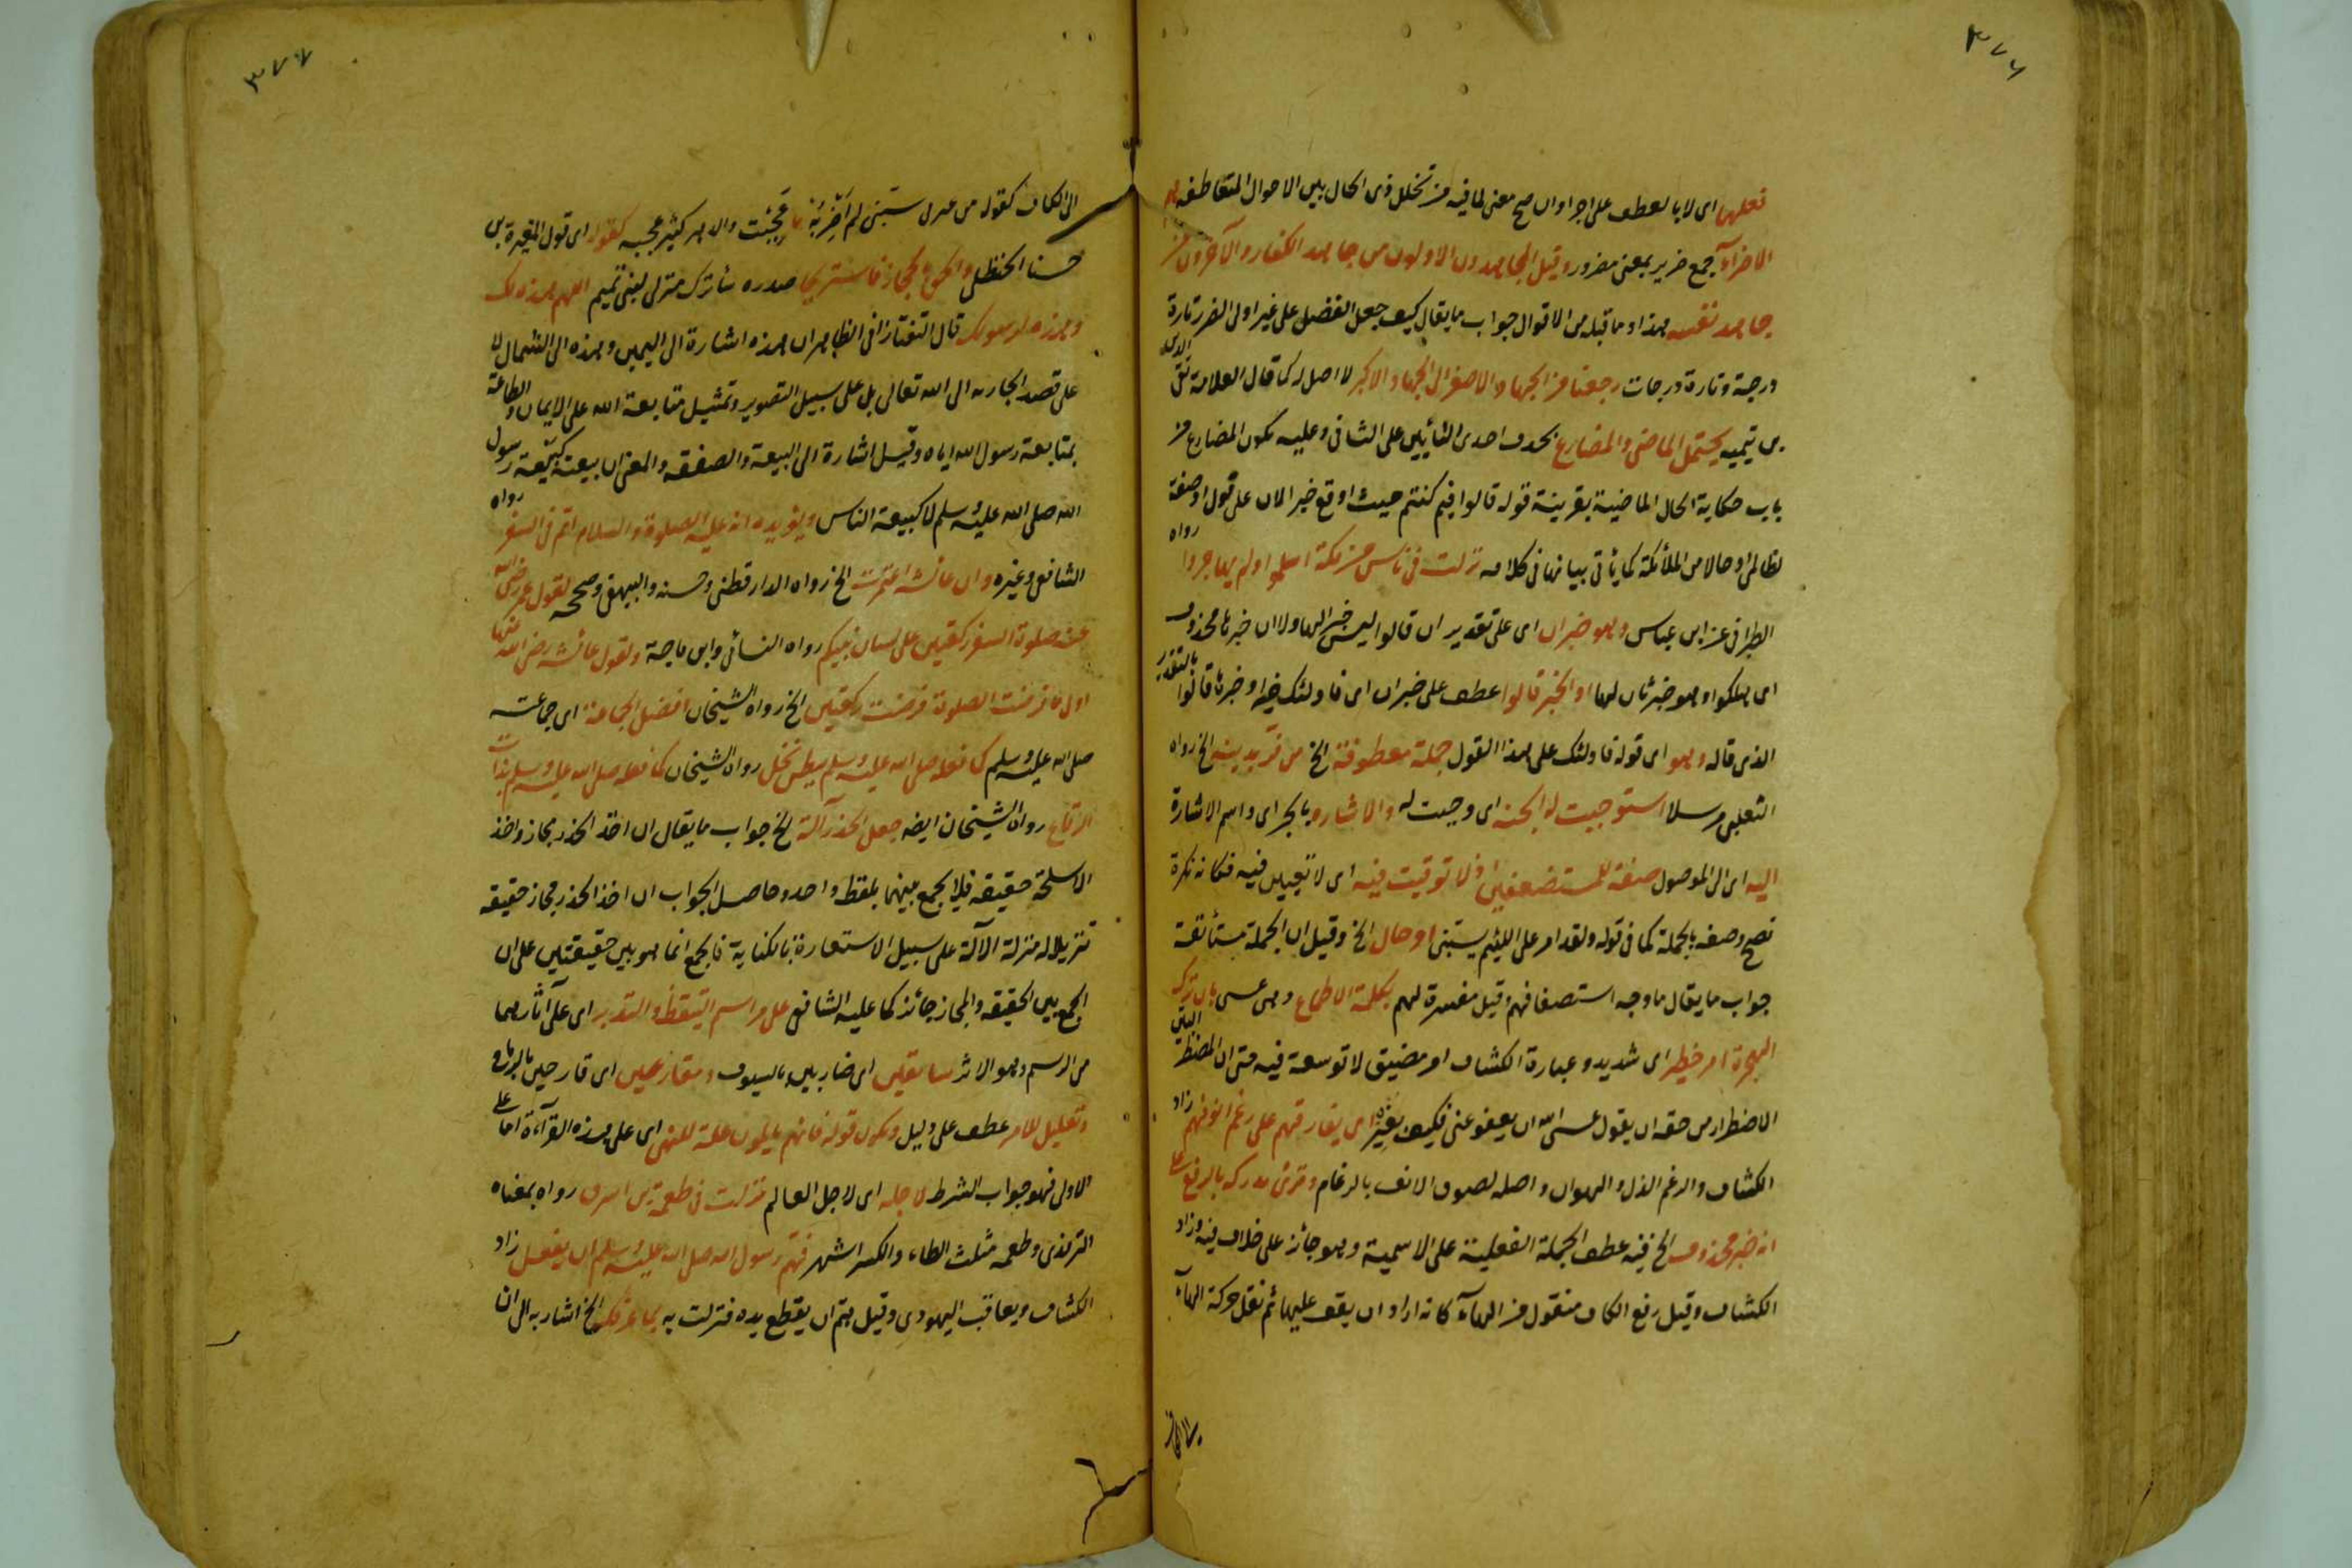 ٣٧٦
فعلهما اى لا بالعطف على اجرا وان صح معنى لما فيه من تخلل ذى الحال بين الاحوال المتعاطفه
الاضرآء جمع ضرير بمعنى مضرور وقيل المجاهدون الاولون من جاهد الكفار والآخرون من
جاهد نفسه هذا وما قبله من الاقوال جواب ما يقال كيف جعل الفضل على غير اولى الضرر تارة
درجة وتارة درجات رجعنا من الجهاد الاصغر الى الجهاد الاكبر لا اصل له كما قال العلامة تقى الدين
بن تيميه يحتمل الماضى والمضارع بحذف احدى التائين على الثانى وعليه يكون المضارع من
باب حكاية الحال الماضية بقرينة قوله قالوا فيم كنتم حيث اوقع خبر الان على قول او صفة
لظالمى او حالا من الملائكة كما يأتى بيانها فى كلامه نزلت فى ناس من مكة اسلموا ولم يهاجروا رواه
الطبرانى عن ابن عباس وهو خبر ان اى على تقدير ان قالوا ليس خبرا لها والا ان خبرها محذوف
اى هلكوا وهو خبر ثان لها او الخبر قالوا عطف على خبر ان اى فاولئك خبر او خبرها قالوا بالتقدير
الذى قاله وهو اى قوله فاولئك على هذا القول جملة معطوفة الخ من فر بدينه الخ رواه
الثعلبى مرسلا استوجبت له الجنة اى وجبت له والاشاره بالجر اى واسم الاشارة
اليه اى الى الموصول صفة للمستضعفين اذ لا توقيت فيه اى لا تعيين فيه فكانه نكرة
فصح وصفه بالجملة كما فى قوله ولقد امر على اللئيم يسبنى او حال الخ وقيل ان الجملة مستأنفة
جواب ما يقال ما وجه استضعافهم وقيل مفسرة لهم بكلمة الاطماع وهى عسى بان ترك
الهجرة امر خطير اى شديد وعبارة الكشاف امر مضيق لا توسعة فيه حتى ان المضطر البين
الاضطرار من حقه ان يقول عسى الله ان يعفو عنى فكيف بغيره اى يفارقهم على رغم انوفهم زاد
الكشاف والرغم الذل والهوان واصله لصوق الانف بالرغام وقرئ يدركه بالرفع على
انه خبر محذوف الخ فيه عطف الجملة الفعلية على الاسمية وهو جائز على خلاف فيه وزاد
الكشاف وقيل رفع الكاف منقول من الهآء كانه اراد ان يقف عليها ثم نقل حركة الهآء
٣٧٧
الى الكاف كقوله من عنزى سبنى لم اضربه عجبت والدهر كثير عجبه كقوله اى قول المغيرة بن
حسنا الحنظلى والحق بالحجاز فاستريحا صدره سأترك منزلى لبنى تميم اللهم هذه لك
وهذه لرسولك قال التفتازانى الظاهر ان هذه اشارة الى اليمين وهذه الى الشمال لا
على قصد الجارحه الى الله تعالى بل على سبيل التصوير وتمثيل متابعة الله على الايمان والطاعة
بمتابعة رسول الله اياه وقيل اشارة الى البيعة والصفقه والمعنى ان بيعته كبيعة رسول
الله صلى الله عليه وسلم لا كبيعة الناس ويؤيده انه عليه الصلوة والسلام اتم فى السفر رواه
الشافعى وغيره وان عائشة اعتمرت الخ رواه الدارقطنى وحسنه والبيهقى وصححه لقول عمر رضى الله
عنه صلوة السفر ركعتين على لسان نبيكم رواه النسائى وابن ماجة ولقول عائشه رضى الله عنها
اول ما فرضت الصلوة فرضت ركعتين الخ رواه الشيخان افضل الجماعة اى جماعته
صلى الله عليه وسلم كما فعله صلى الله عليه وسلم ببطن نخل رواه الشيخان كما فعله صلى الله عليه وسلم بذات
الرقاع رواه الشيخان ايضه جعل الحذر آلة الخ جواب ما يقال ان اخذ الحذر مجاز واخذ
الاسلحة حقيقه فلا يجمع بينهما بلفظ واحد وحاصل الجواب ان اخذ الحذر مجاز حقيقه
تنزيلا له منزلة الآلة على سبيل الاستعارة بالكناية فالجمع انما هو بين حقيقتين على ان
الجمع بين الحقيقه والمجاز جائز كما عليه الشافعى على مراسم التيقظ والتدبر اى على آثارهما
من الرسم وهو الاثر مسايفين اى ضاربين بالسيوف ومقارعين اى قارحين بالرماح
وتعليل للامر عطف على دليل ويكون قوله فانهم يالمون علة للنهى اى على هذه القرآءة اما على
الاولى فهو جواب الشرط لاجله اى لاجل العالم نزلت فى طعمة بن ابيرق رواه بمعناه
الترمذى وطعمه مثلث الطاء والكسر اشهر فهم رسول الله صلى الله عليه وسلم ان يفعل زاد
الكشاف ويعاقب اليهودى وقيل هم ان يقطع يده فنزلت به بما عرفك الخ اشار به الى ان